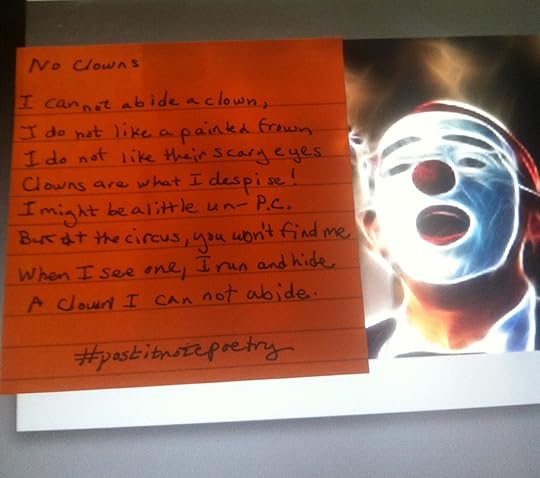 No Clowns
I can not abide a clown,
I do not like a painted frown
I do not like their scary eyes
Clowns are what I despise!
I might be a little un-P.C.
But at the circus, you won't find me
When I see one, I run and hide
A clown I can not abide.
#postitnotepoetry